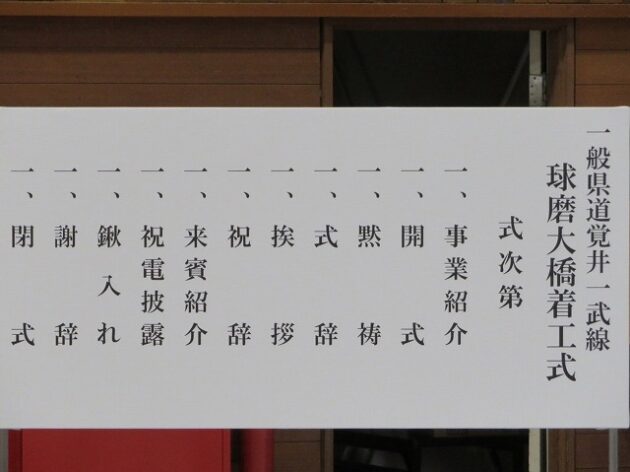 一般県道覚井一武線
球磨大橋着工式
式次第
一、事業紹介
一、開式
一、黙祷
一、式辞
一、挨拶
一、祝辞
一、来賓紹介
一、祝電披露
一、鍬入れ
一、謝辞
一、閉式